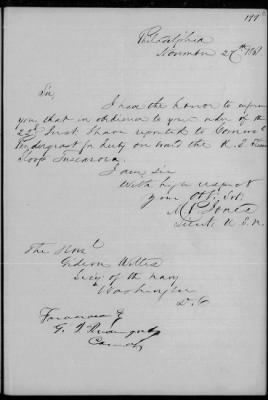 Philadelphia
November 27th 1861
Sir,
I have the honor to inform
you that in obedience to your order of the
22d Inst I have reported to Commo
Pendergrast for duty on board the U.S. Steam
Sloop Tuscarora.
I am, sir
With high respect
your Obt. Svt.
M. P. Jones
Lieut. U.S.N.
The Honl
Gideon Welles
Secy of the Navy
Washington
D.C.
Forwarded
G. J. Pendergrast
Commo